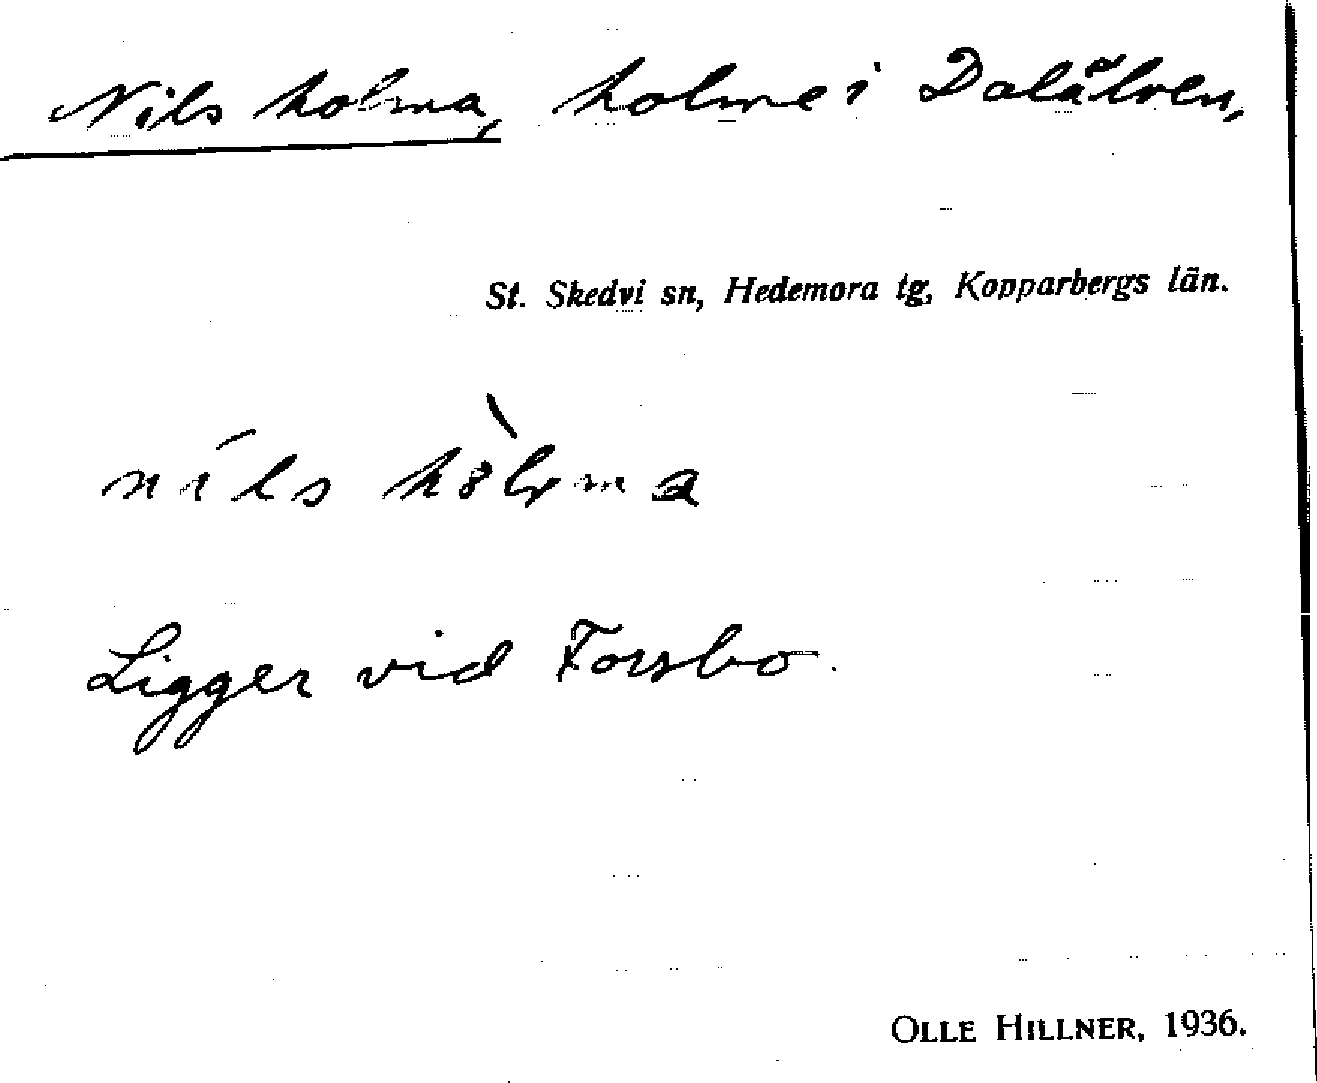 Nils holma, holme i Dalälven,
St. Skedvi sn, Hedemora tg, Kopparbergs län.
nils
Ligger vid Forsbo.
OLLE HILLNER, 1936.